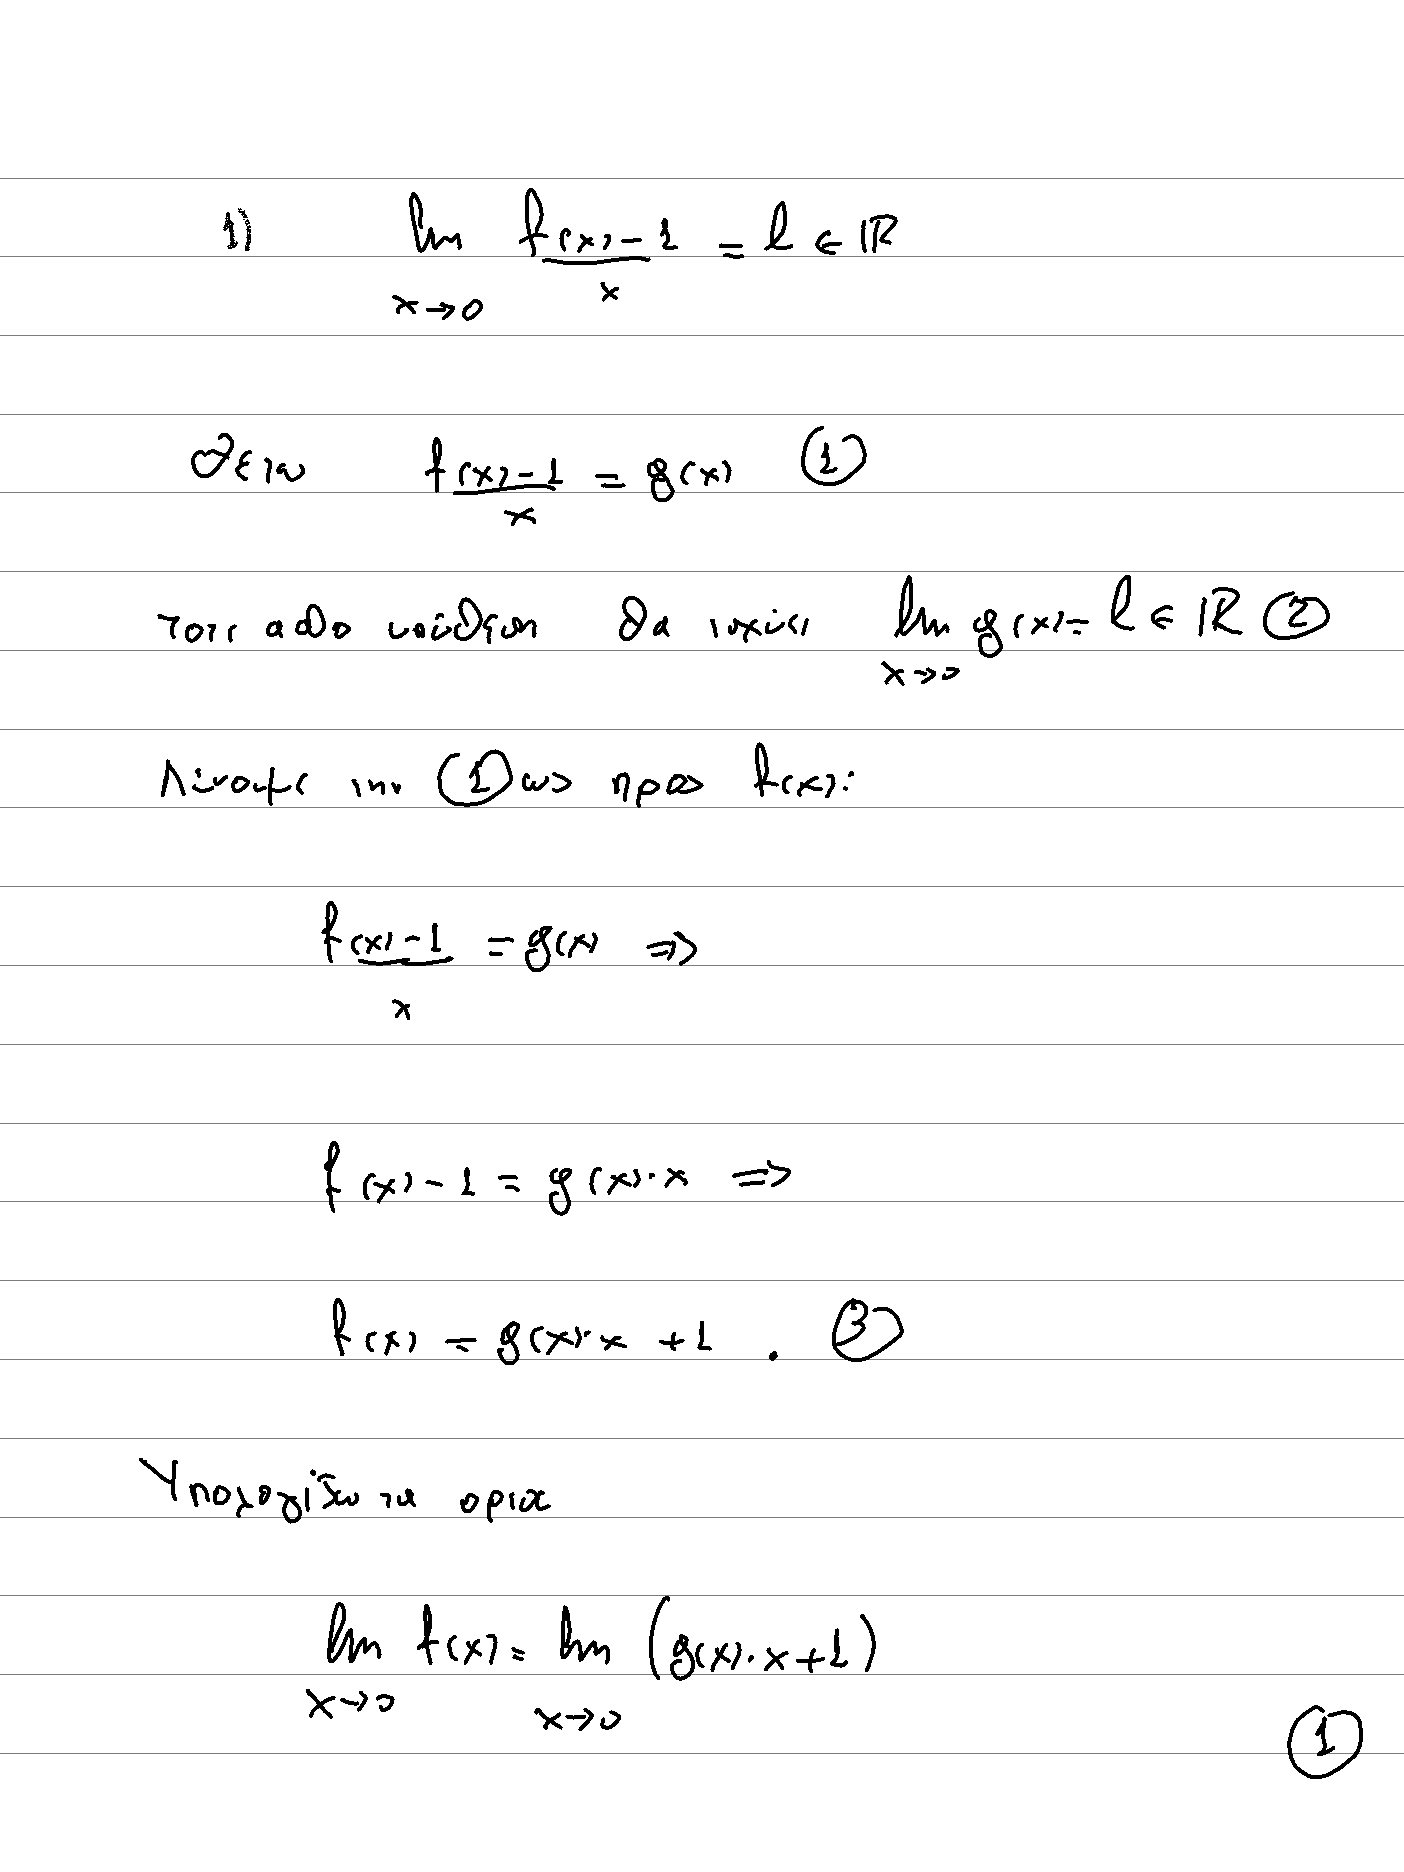 1) lim f(x)-1 = l ∈ ℝ
x→0 x
θέτω f(x)-1 = g(x) ①
x
τοτε από υπόθεση θα ισχύει lim g(x)= l ∈ ℝ ②
x→0
Λύνουμε την ① ως προς f(x):
f(x)-1 = g(x) ⇒
x
f(x)-1 = g(x)·x ⇒
f(x) = g(x)·x +1 . ③
Υπολογίζω τα ορια
lim f(x) = lim (g(x)·x+1)
x→0 x→0
①